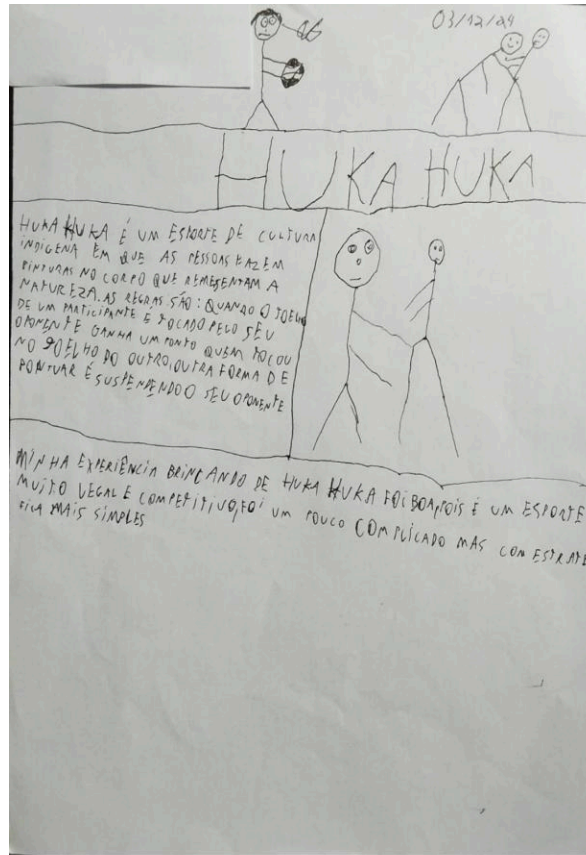 03/12/24
HUKA HUKA
HUKA HUKA É UM ESPORTE DE CULTURA
INDÍGENA EM QUE AS PESSOAS FAZEM
PINTURAS NO CORPO QUE REPRESENTAM A
NATUREZA. AS REGRAS SÃO: QUANDO O JOELHO
DE UM PARTICIPANTE É TOCADO PELO SEU
OPONENTE GANHA UM PONTO QUEM TOCOU
NO JOELHO DO OUTRO, OUTRA FORMA DE
PONTUAR É SUSPENDENDO O SEU OPONENTE
MINHA EXPERIÊNCIA BRINCANDO DE HUKA HUKA FOI BOA, POIS É UM ESPORTE
MUITO LEGAL E COMPETITIVO, FOI UM POUCO COMPLICADO MAS COM ESTRATE
FICA MAIS SIMPLES